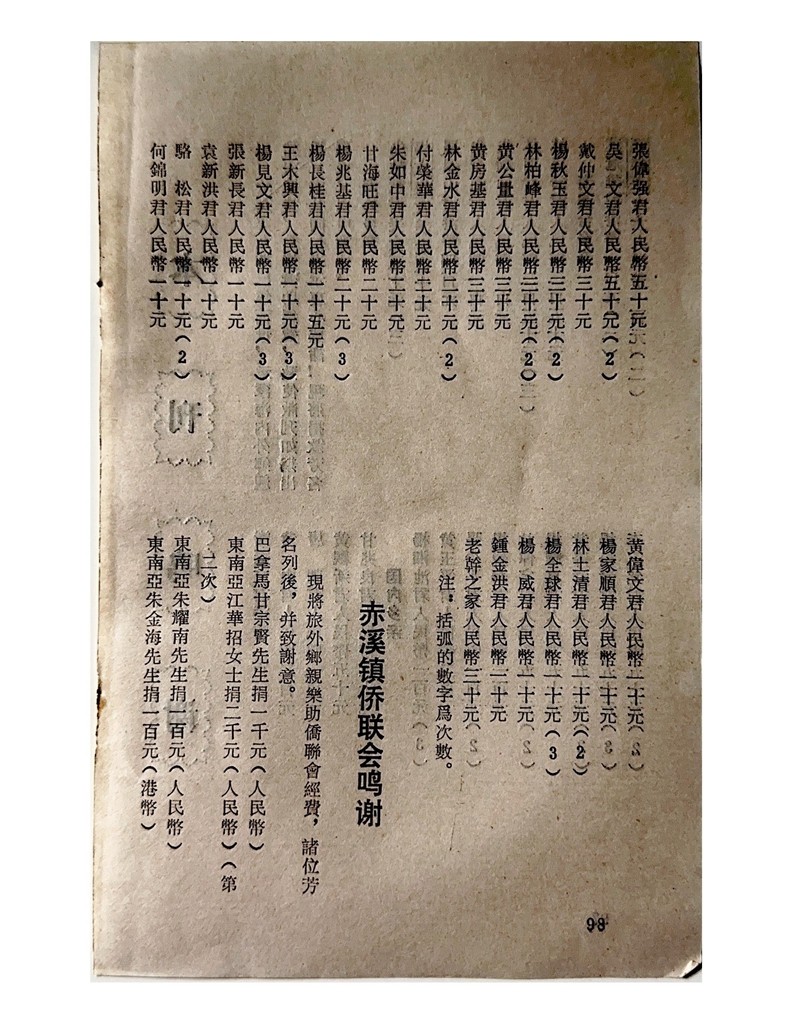 張偉强君人民幣五十元
吳一文君人民幣五十元(2)
戴仲文君人民幣三十元
楊秋玉君人民幣三十元(2)
林柏峰君人民幣三十元(2)
黄公量君人民幣三十元
黄房基君人民幣三十元
林金水君人民幣二十元(2)
付榮華君人民幣二十元
朱如中君人民幣二十元
甘海旺君人民幣二十元
楊兆基君人民幣二十元(3)
楊長桂君人民幣一十五元
王木興君人民幣一十元(3)
楊見文君人民幣一十元(3)
張新長君人民幣一十元
袁新洪君人民幣一十元
駱 松君人民幣一十元(2)
何錦明君人民幣一十元
黄偉文君人民幣一十元
楊家順君人民幣一十元
林土清君人民幣一十元(2)
楊全球君人民幣一十元(3)
楊 威君人民幣一十元
鍾金洪君人民幣一十元
老幹之家人民幣三十元
注:括弧的數字爲次數。
赤溪镇侨联会鸣谢
現將旅外鄉親樂助僑聯會經費,諸位芳
名列後,并致謝意。
巴拿馬甘宗賢先生捐一千元(人民幣)
東南亞江華招女士捐二千元(人民幣)(第
二次)
東南亞朱耀南先生捐一百元(人民幣)
東南亞朱金海先生捐一百元(港幣)
98